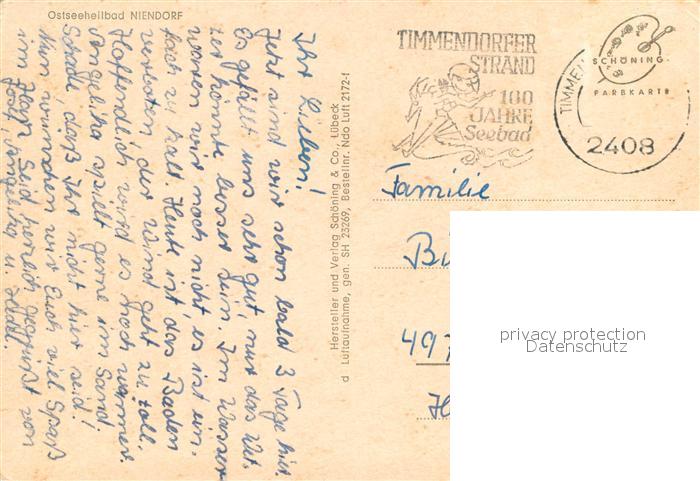 Ostseeheilbad NIENDORF
Ihr Lieben!
Jetzt sind wir schon bald 3 Tage hier.
Es gefällt uns sehr gut, nur das Wet-
ter könnte besser sein. Im Wasser
waren wir noch nicht, es ist ein-
fach zu kalt. Heute ist das Baden
verboten der Wind geht zu toll.
Hoffendlich wird es noch wärmer.
Angelika spielt gerne im Sand.
Schade, daß Ihr nicht hier seid!
Nun wünschen wir Euch viel Spaß
im Seid herzlich gegrüßt von
Angelika u.
Hersteller und Verlag Schöning & Co., Lübeck
d Luftaufnahme, gen. SH 23269, Bestellnr. Ndo Luft 2172-f
TIMMENDORFER
STRAND
100
JAHRE
Seebad
TIMMEN
2408
SCHÖNING
FARBKARTE
Familie
privacy protection
Datenschutz